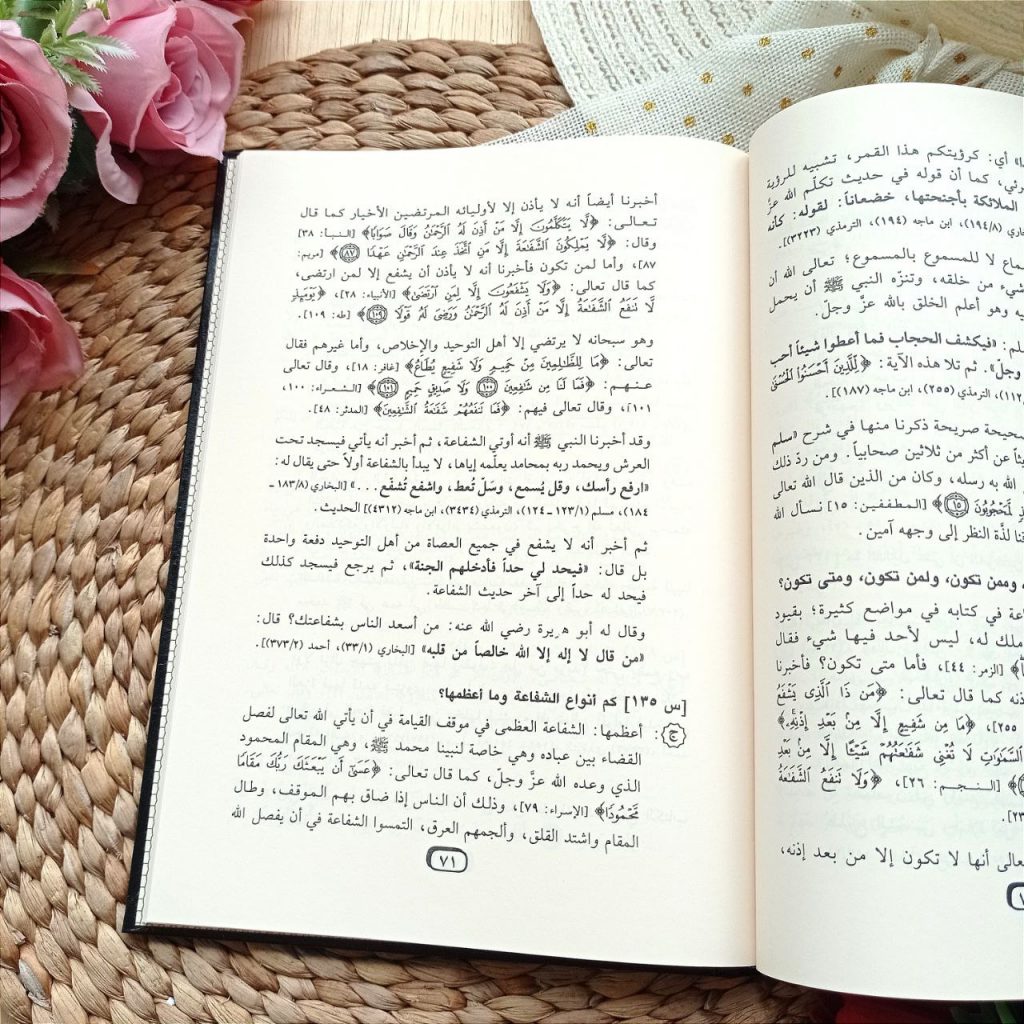 ـها» أي: كرؤيتكم هذا القمر، تشبيه للرؤية
ـرئي، كما أن قوله في حديث تكلّم الله عزَّ
الملائكة بأجنحتها، خضعاناً: لقوله: كأنه
(١٩٤/٨)، ابن ماجه (١٩٤)، الترمذي (٣٢٢٣)].
ـماع لا للمسموع بالمسموع؛ تعالى الله أن
شيء من خلقه، وتنزّه النبي ﷺ أن يحمل
ـيه وهو أعلم الخلق بالله عزَّ وجلّ.
ـلم: «فيكشف الحجاب فما أعطوا شيئاً أحب
وجلّ». ثم تلا هذه الآية: ﴿لِّلَّذِينَ أَحْسَنُوا الْحُسْنَىٰ
١١٢)، الترمذي (٢٥٥)، ابن ماجه (١٨٧)].
ـحيحة صريحة ذكرنا منها في شرح «سلم
ـثاً عن أكثر من ثلاثين صحابياً. ومن ردّ ذلك
الله به رسله، وكان من الذين قال الله تعالى
ـذٍ لَّمَحْجُوبُونَ ﴿١٥﴾﴾ [المطففين: ١٥] نسأل الله
ـقنا لذّة النظر إلى وجهه آمين.
، وممن تكون، ولمن تكون، ومتى تكون؟
ـاعة في كتابه في مواضع كثيرة؛ بقيود
ـملك له، ليس لأحد فيها شيء فقال
[الزمر: ٤٤]، فأما متى تكون؟ فأخبرنا
ـذنه كما قال تعالى: ﴿مَن ذَا الَّذِي يَشْفَعُ
٢٥٥]، ﴿مَا مِن شَفِيعٍ إِلَّا مِنْ بَعْدِ إِذْنِهِ﴾
السَّمَاوَاتِ لَا تُغْنِي شَفَاعَتُهُمْ شَيْئًا إِلَّا مِنْ بَعْدِ
[النجم: ٢٦]، ﴿وَلَا تَنفَعُ الشَّفَاعَةُ
٢٣].
ـعالى أنها لا تكون إلا من بعد إذنه،
أخبرنا أيضاً أنه لا يأذن إلا لأوليائه المرتضين الأخيار كما قال
تعالى: ﴿لَّا يَتَكَلَّمُونَ إِلَّا مَنْ أَذِنَ لَهُ الرَّحْمَٰنُ وَقَالَ صَوَابًا﴾ [النبأ: ٣٨]
وقال: ﴿لَّا يَمْلِكُونَ الشَّفَاعَةَ إِلَّا مَنِ اتَّخَذَ عِندَ الرَّحْمَٰنِ عَهْدًا ﴿٨٧﴾﴾ [مريم:
٨٧]، وأما لمن تكون فأخبرنا أنه لا يأذن أن يشفع إلا لمن ارتضى،
كما قال تعالى: ﴿وَلَا يَشْفَعُونَ إِلَّا لِمَنِ ارْتَضَىٰ﴾ [الأنبياء: ٢٨]، ﴿يَوْمَئِذٍ
لَّا تَنفَعُ الشَّفَاعَةُ إِلَّا مَنْ أَذِنَ لَهُ الرَّحْمَٰنُ وَرَضِيَ لَهُ قَوْلًا ﴿١٠٩﴾﴾ [طه: ١٠٩].
وهو سبحانه لا يرتضي إلا أهل التوحيد والإخلاص، وأما غيرهم فقال
تعالى: ﴿مَا لِلظَّالِمِينَ مِنْ حَمِيمٍ وَلَا شَفِيعٍ يُطَاعُ﴾ [غافر: ١٨]، وقال تعالى
عنهم: ﴿فَمَا لَنَا مِن شَافِعِينَ ﴿١٠٠﴾ وَلَا صَدِيقٍ حَمِيمٍ ﴿١٠١﴾﴾ [الشعراء: ١٠٠،
١٠١]، وقال تعالى فيهم: ﴿فَمَا تَنفَعُهُمْ شَفَاعَةُ الشَّافِعِينَ﴾ [المدثر: ٤٨].
وقد أخبرنا النبي ﷺ أنه أوتي الشفاعة، ثم أخبر أنه يأتي فيسجد تحت
العرش ويحمد ربه بمحامد يعلّمه إياها، لا يبدأ بالشفاعة أولاً حتى يقال له:
«ارفع رأسك، وقل يُسمع، وسَلْ تُعط، واشفع تُشفّع...» [البخاري (١٨٣/٨ ـ
١٨٤)، مسلم (١٢٣/١ ـ ١٢٤)، الترمذي (٣٤٣٤)، ابن ماجه (٤٣١٢)] الحديث.
ثم أخبر أنه لا يشفع في جميع العصاة من أهل التوحيد دفعة واحدة
بل قال: «فيحد لي حداً فأدخلهم الجنة»، ثم يرجع فيسجد كذلك
فيحد له حداً إلى آخر حديث الشفاعة.
وقال له أبو هريرة رضي الله عنه: من أسعد الناس بشفاعتك؟ قال:
«من قال لا إله إلا الله خالصاً من قلبه» [البخاري (٣٣/١)، أحمد (٣٧٣/٢)].
[س ١٣٥] كم أنواع الشفاعة وما أعظمها؟
ج: أعظمها: الشفاعة العظمى في موقف القيامة في أن يأتي الله تعالى لفصل
القضاء بين عباده وهي خاصة لنبينا محمد ﷺ، وهي المقام المحمود
الذي وعده الله عزَّ وجلّ، كما قال تعالى: ﴿عَسَىٰ أَن يَبْعَثَكَ رَبُّكَ مَقَامًا
مَّحْمُودًا﴾ [الإسراء: ٧٩]، وذلك أن الناس إذا ضاق بهم الموقف، وطال
المقام واشتد القلق، وألجمهم العرق، التمسوا الشفاعة في أن يفصل الله
٧١